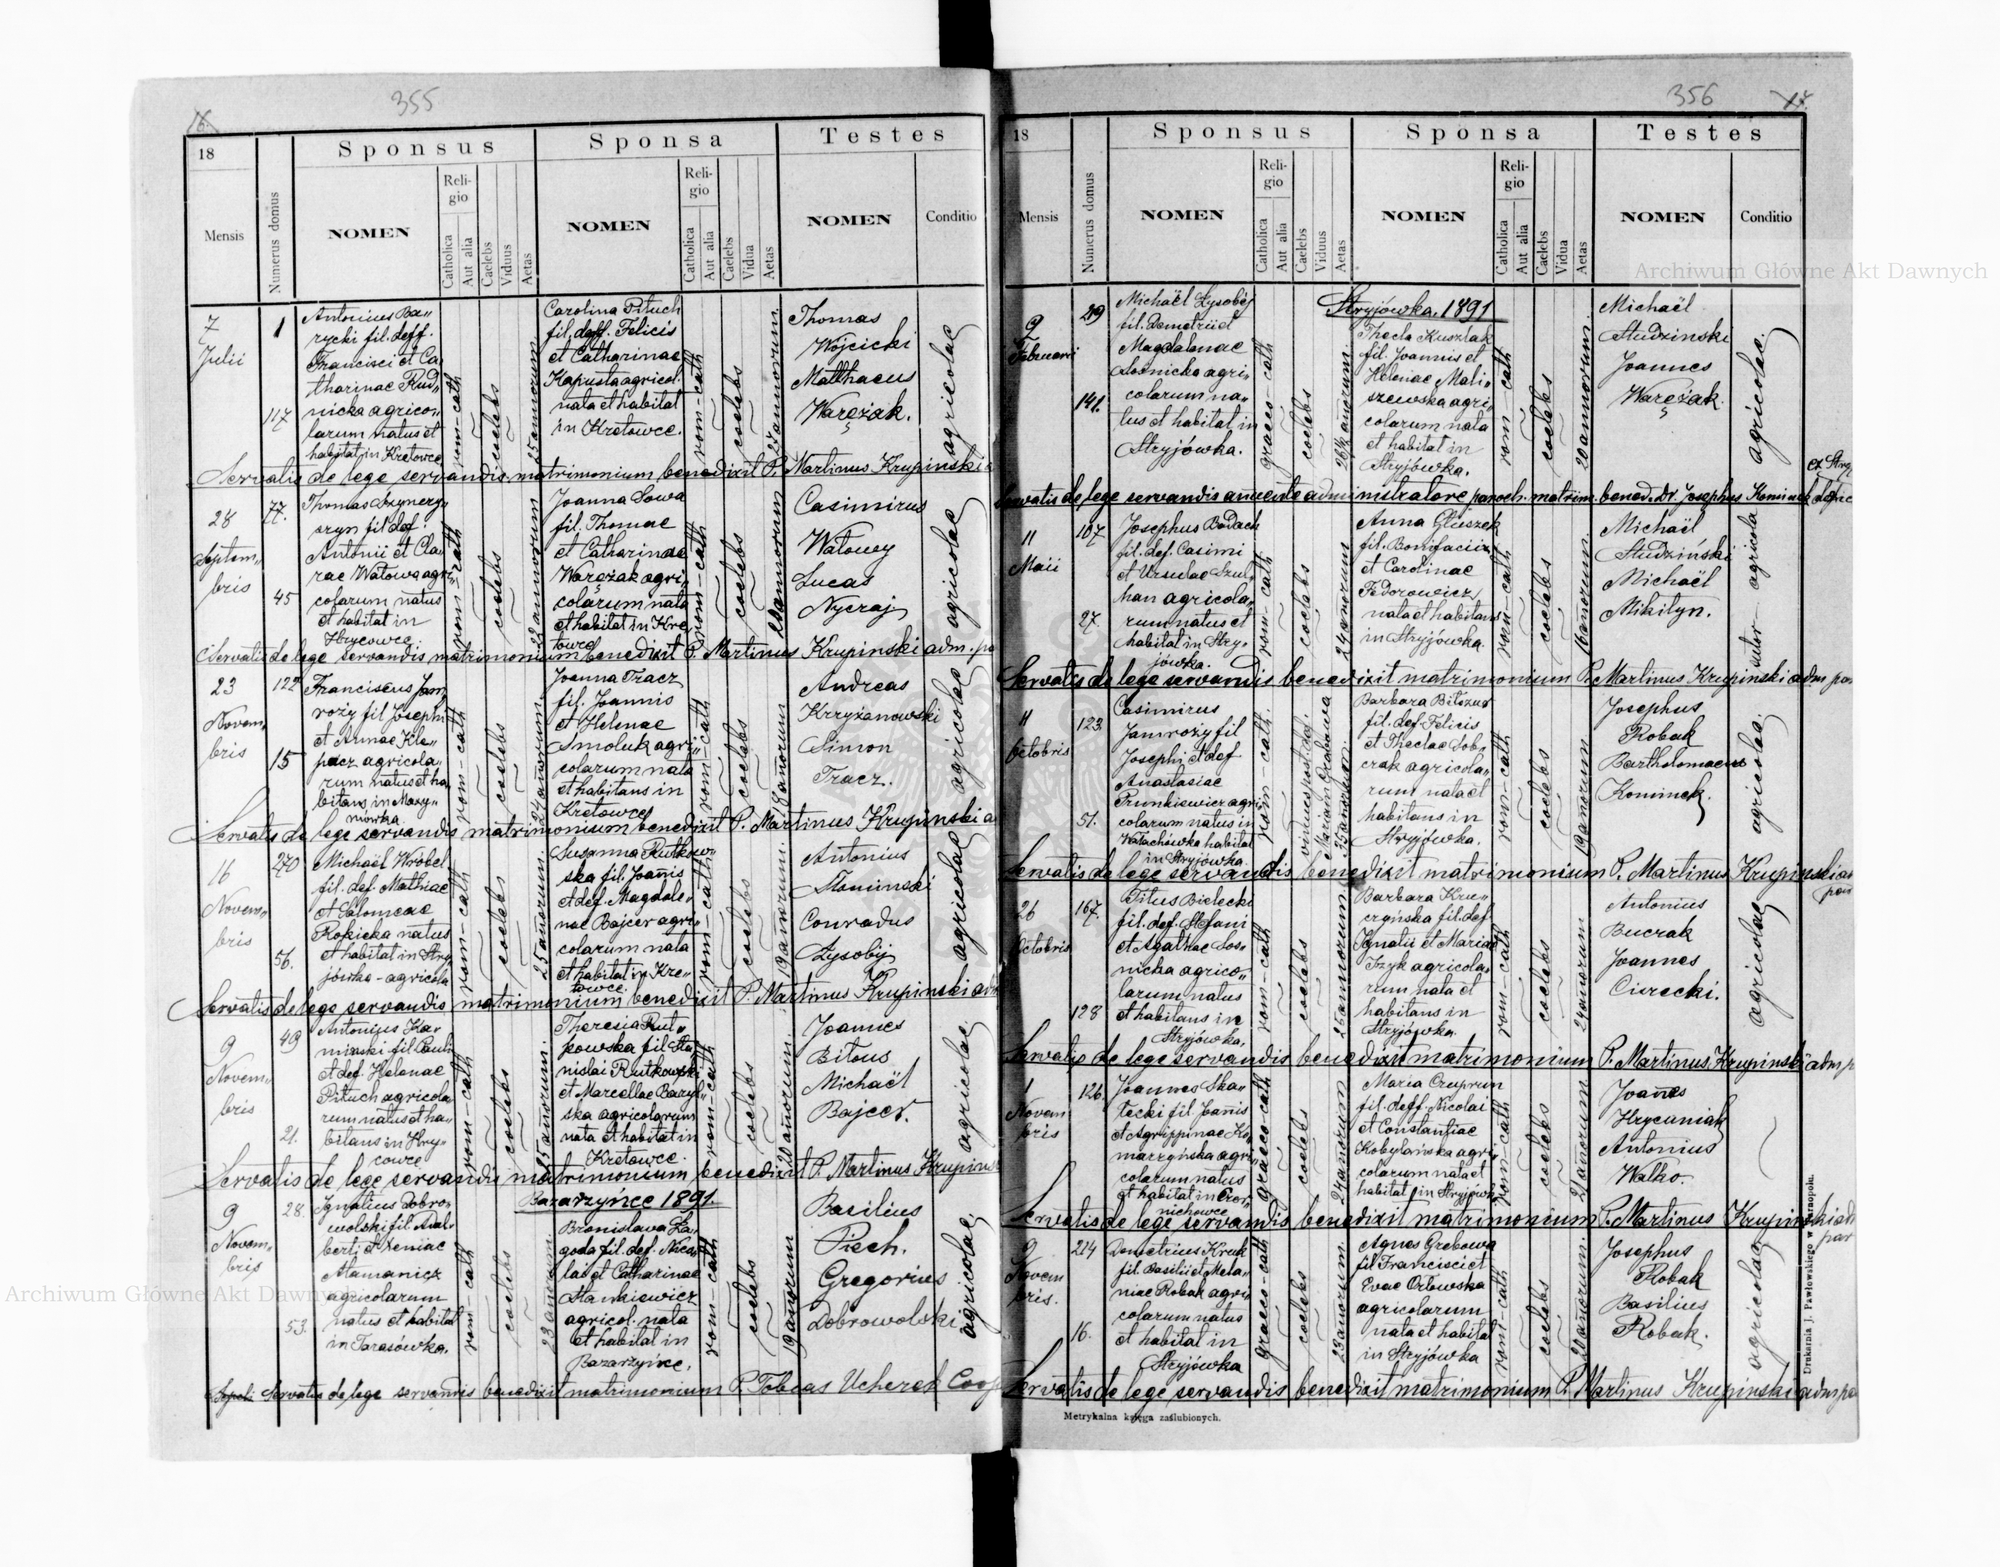 355
16.
18
Sponsus
Sponsa
Testes
Mensis
Numerus domus
NOMEN
Religio
Catholica
Aut alia
Caelebs
Viduus
Aetas
NOMEN
Religio
Catholica
Aut alia
Caelebs
Vidua
Aetas
NOMEN
Conditio
7
Julii
1
117
Antonius Ba„
rycki fil. deff.
Francisci et Ca
tharinae Rud„
nicka agrico„
larum natus et
habitat in Kretowce
rom-cath
coelebs
Carolina Pituch
fil. deff. Felicis
et Catharinae
Kapusta agricol.
nata et habitat
in Kretowce.
rom-cath
coelebs
Thomas
Wójcicki
Matthaeus
Waręzak.
agricolae
Servatis de lege servandis matrimonium benedixit P. Martinus Krupinski
28
Septem„
bris
77.
45
Antonii et Cla„
rae Watowa agri„
colarum natus
et habitat in
Hrycowce.
rom-cath
coelebs
Joanna Sowa
fil. Thomae
et Catharinae
Waręzak agri„
colarum nata
et habitat in Kre
towce
rom-cath
coelebs
Casimirus
Watowy
Lucas
Nycraj
agricolae
Servatis de lege servandis matrimonium benedixit P. Martinus Krupinski adm. pa
23
Novem„
bris
122
15
Franciscus Jam
roży fil Josephi
et Annae Kle„
pacz agricola„
rum natus et ha„
bitans in Maxy„
mówka.
rom-cath
coelebs
24 annorum.
Joanna Tracz
fil. Joannis
et Helenae
Smoluk agri„
colarum nata
et habitans in
Kretowce
rom-cath
coelebs
Andreas
Krzyżanowski
Simon
Tracz.
agricolae
Servatis de lege servandis matrimonium benedixit P. Martinus Krupinski a
16
Novem„
bris
270
56.
Michaël Wróbel
fil. def. Mathiae
et Salomeae
Rokicka natus
et habitat in Stry
jówka - agricola
rom-cath
coelebs
25 anorum.
Susanna Rutkow„
ska fil. Joanis
et def. Magdale„
nae Bajcer agri„
colarum nata
et habitat in Kre„
towce.
rom-cath
coelebs
19 anorum.
Antonius
Słominski
Conradus
Łysobÿ
agricolae
Servatis de lege servandis matrimonium benedixit P. Martinus Krupinski adm
9
Novem„
bris
49
21.
Antonius Ka„
minski fil Pauli
et def. Helenae
Pituch agricola
rum natus et ha„
bitans in Hry„
cowce
rom-cath
coelebs
25 anorum.
Theresia Rut„
powska fil Sta„
nislai Rutkowski
et Marcellae Bary„
ska agricolarum
nata et habitat in
Kretowce.
rom-cath
coelebs
20 anorum.
Joannes
Bitous
Michaël
Bajcer.
agricolae
Servatis de lege servandis matrimonium benedixit P. Martinus Krupins
Bazarzyńce 1891.
9
Novem„
bris
28.
53.
Ignatius Dobro„
wolski fil. Adal„
berti et Xeniae
Atamanicz
agricolarum
natus et habitat
in Tarasówka.
rom-cath
coelebs
23 anorum.
Bronislava Za„
goda fil. def. Nico„
lai et Catharinae
Stankiewicz
agricol. nata
et habitat in
Bazarzyńce,
rom-cath
coelebs
19 anorum
Basilius
Piech.
Gregorius
Dobrowolski
agricolae.
Servatis de lege servandis benedixit matrimonium P. Tobias Ucherek Coop
356
18
Sponsus
Sponsa
Testes
Mensis
Numerus domus
NOMEN
Religio
Catholica
Aut alia
Caelebs
Viduus
Aetas
NOMEN
Religio
Catholica
Aut alia
Caelebs
Vidua
Aetas
NOMEN
Conditio
Stryjówka. 1891
9
Februarii
29
141.
Michaël Łysobÿ
fil. Demetrii et
Magdalenae
Sośnicka agri„
colarum na„
tus et habitat in
Stryjówka.
graeco-cath
coelebs
Thecla Kusztak
fil. Joannis et
Helenae Mali„
szewska agri„
colarum nata
et habitat in
Stryjówka.
rom-cath
coelebs
20 annorum.
Michaël
Studzinski
Joannes
Waręzak.
agricolae.
Servatis de lege servandis annuente administratore paroch. matrim. bened. Dr. Josephus
11
Maii
107
27.
Josephus Badach
fil. def. Casimi
et Ursulae Szul„
han agricola„
rum natus et
habitat in Stry„
jówka.
rom-cath
coelebs
24 anorum
Anna Głuszek
fil. Bonifacii
et Carolinae
Fedorowicz
nata et habitans
in Stryjówka.
rom-cath
coelebs
16 anorum.
Michaël
Studziński
Michaël
Mikityn.
sutor - agricola
Servatis de lege servandis benedixit matrimonium P. Martinus Krupinski adm par
11
Octobris
123
51.
Casimirus
Jamroży fil
Josephi et def
Anastasiae
Prunkiewicz agri
colarum natus in
Wałachówka habitat
in Stryjówka.
rom-cath.
35 anorum.
Barbara Bitous
fil. def. Felicis
et Theclae Sob„
czak agricola„
rum nata et
habitans in
Stryjówka.
rom-cath
coelebs
19 anorum.
Josephus
Robak
Bartholomaeus
Kominek.
agricolae.
Servatis de lege servandis benedixit matrimonium P. Martinus Krupinski ad
par
26
Octobris
167.
128
Titus Bielecki
fil. def. Stefani
et Agathae Sos„
nicka agrico„
larum natus
et habitans in
Stryjówka.
rom-cath
coelebs
26 annorum
Barbara Kru„
czyńska fil. def.
Ignatii et Mariae
Iżyk agricola„
rum nata et
habitans in
Stryjówka.
rom-cath
coelebs
24 anorum
Antonius
Buczak
Joannes
Cisecki.
agricolae
Servatis de lege servandis benedixit matrimonium P. Martinus Krupinski adm p
1
Novem
bris
126.
Joannes Ska„
tecki fil. Joanis
et Agrippinae Ko„
marzyńska agri„
colarum natus
et habitat in Czer„
nichowce
graeco-cath
coelebs
24 anorum
Maria Czuprun
fil. deff. Nicolai
et Constantiae
Kobylańska agri„
colarum nata et
habitat in Stryjówka
rom-cath
coelebs
21 anorum
Joanes
Hrycuniak
Antonius
Walko.
Servatis de lege servandis benedixit matrimonium P. Martinus Krupinski adm
par
9
Novem
bris.
214
16.
Demetrius Kruk
fil Basilii et Mela„
niae Robak agri„
colarum natus
et habitat in
Stryjówka
graeco-cath
coelebs
23 anorum.
Agnes Grebowa
fil Francisci et
Evae Orłowska
agricolarum
nata et habitat
in Stryjówka
rom-cath
coelebs
20 anorum.
Josephus
Robak
Basilius
Robak.
agricolae
Servatis de lege servandis benedixit matrimonium P. Martinus Krupinski adm pa
Metrykalna księga zaślubionych.
Drukarnia J. Pawłowskiego w Tarnopolu.
Archiwum Główne Akt Dawnych
Archiwum Główne Akt Dawnych